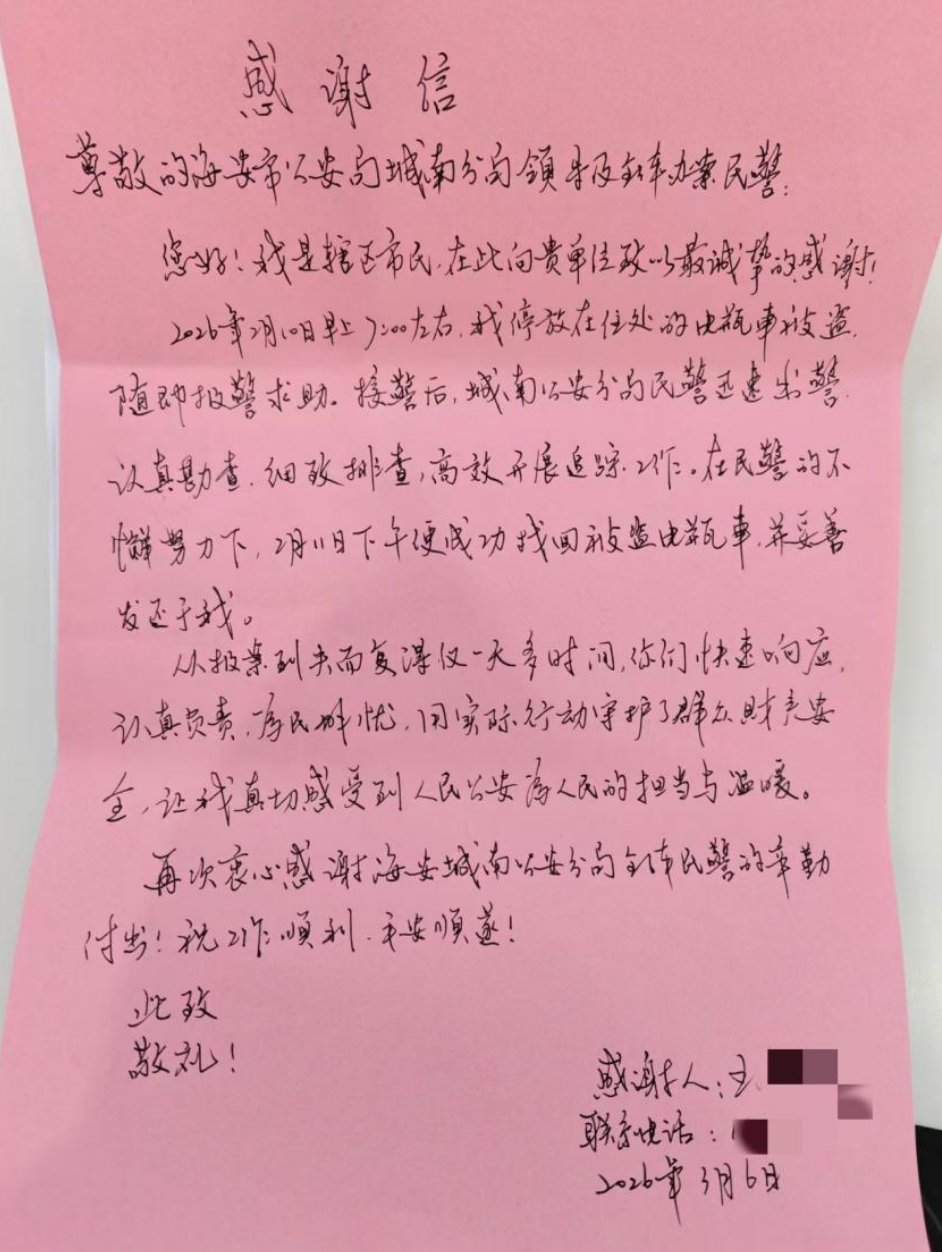 感谢信
尊敬的海安市公安局城南分局領导及全体办案民警:
您好!我是辖区市民,在此向貴单位致以最诚挚的感谢!
2026年2月10日早上7:00左右,我停放在住处的电瓶車被盗,
随即报警求助。接警后,城南公安分局民警迅速出警,
认真勘查,细致排查,高效开展追踪工作。在民警的不
懈努力下,2月11日下午便成功找回被盗电瓶車,并妥善
发还于我。
从报案到失而复得仅一天多时间,你们快速响应,
认真负责,為民解忧,用实际行动守护了群众财产安
全,让我真切感受到人民公安為人民的担当与温暖。
再次衷心感谢海安城南公安分局全体民警的辛勤
付出!祝工作順利,平安順遂!
此致
敬礼!
感谢人:王
联系电话:1
2026年3月6日